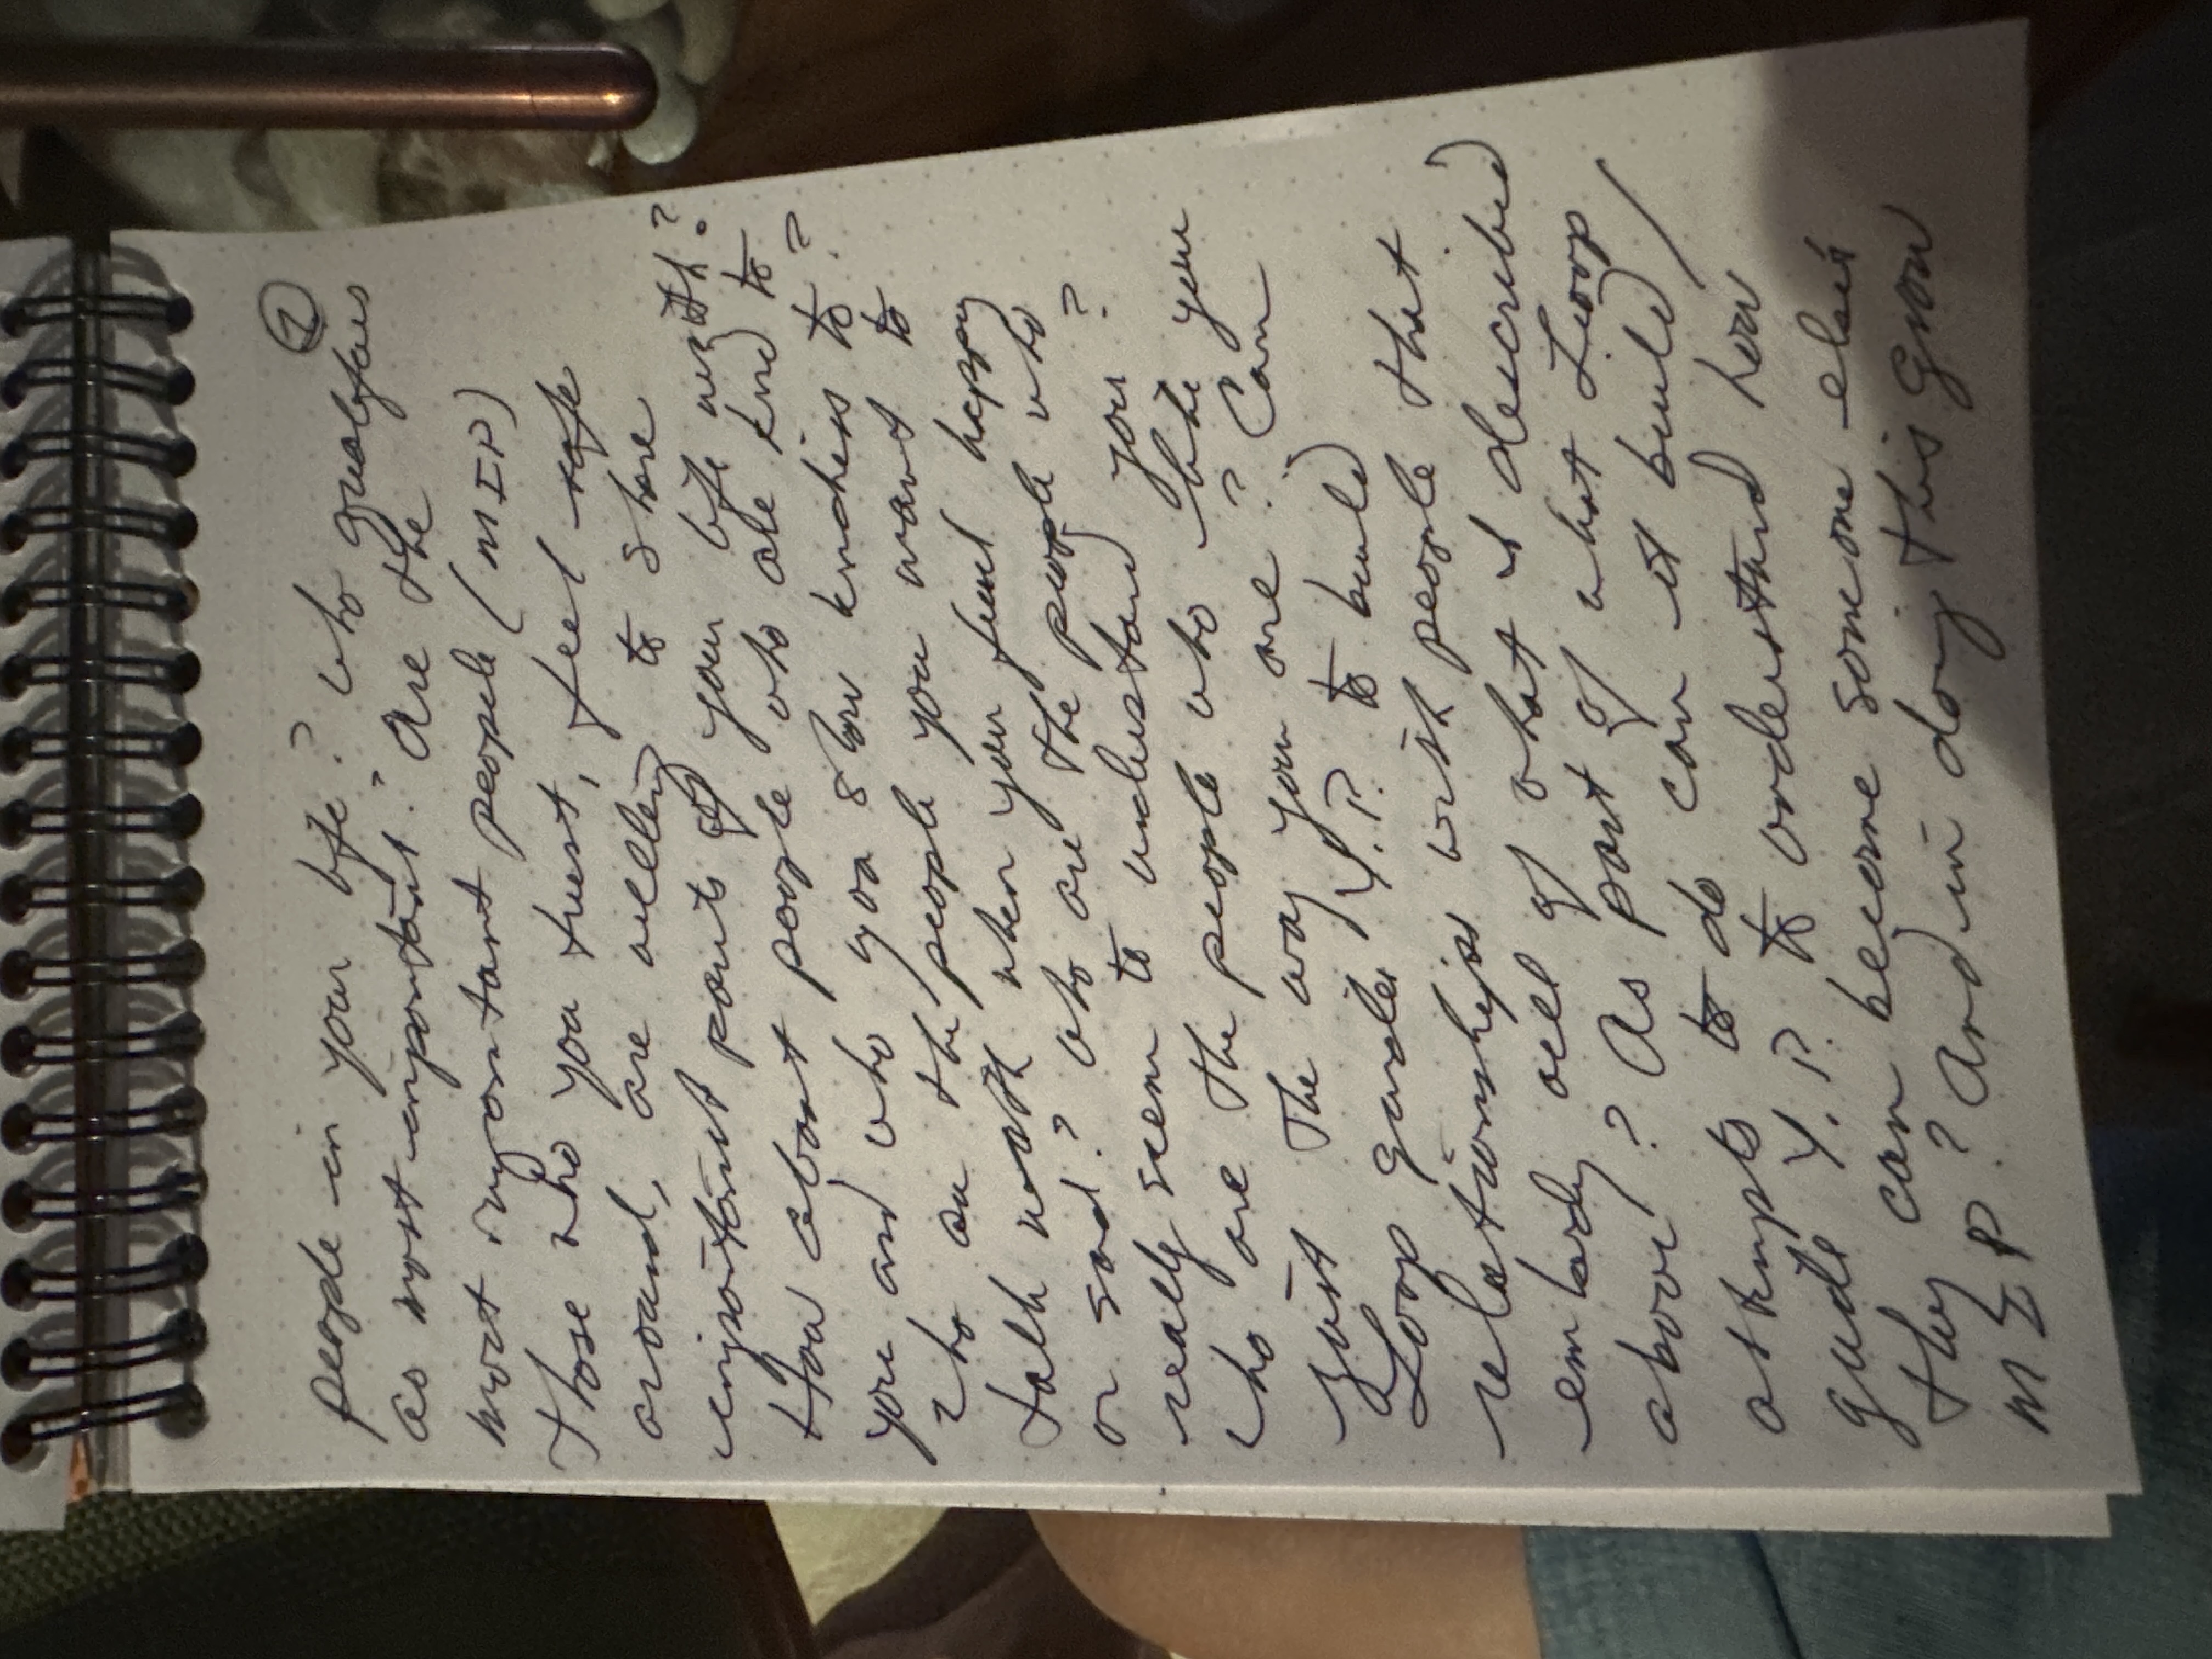 2
people in your life? Who qualifies
as most important? Are the
most important people (MIP)
those who you trust, feel safe
around, are willing to share
important parts of your life with?
How about people who are kind to
you and who you show kindness to?
Who are the people you want to
talk with when you feel happy
or sad? Who are the people who
really seem to understand you?
Who are the people who like you
just the way you are? Can
Loop guide Y.P. to build
relationships with people that
embody all of what I described
above? As part of what Loop
attempts to do can it build/
guide Y.P. to understand how
they can become someone else's
MIP? And in doing this grow